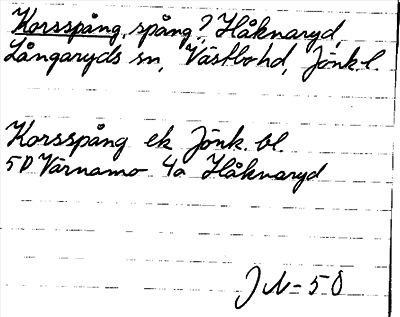 Korsspång, spång? Håknaryd,
Långaryds sn, Västbo hd, Jönk. l.
Korsspång ek Jönk. bl.
5D Värnamo 4a Håknaryd